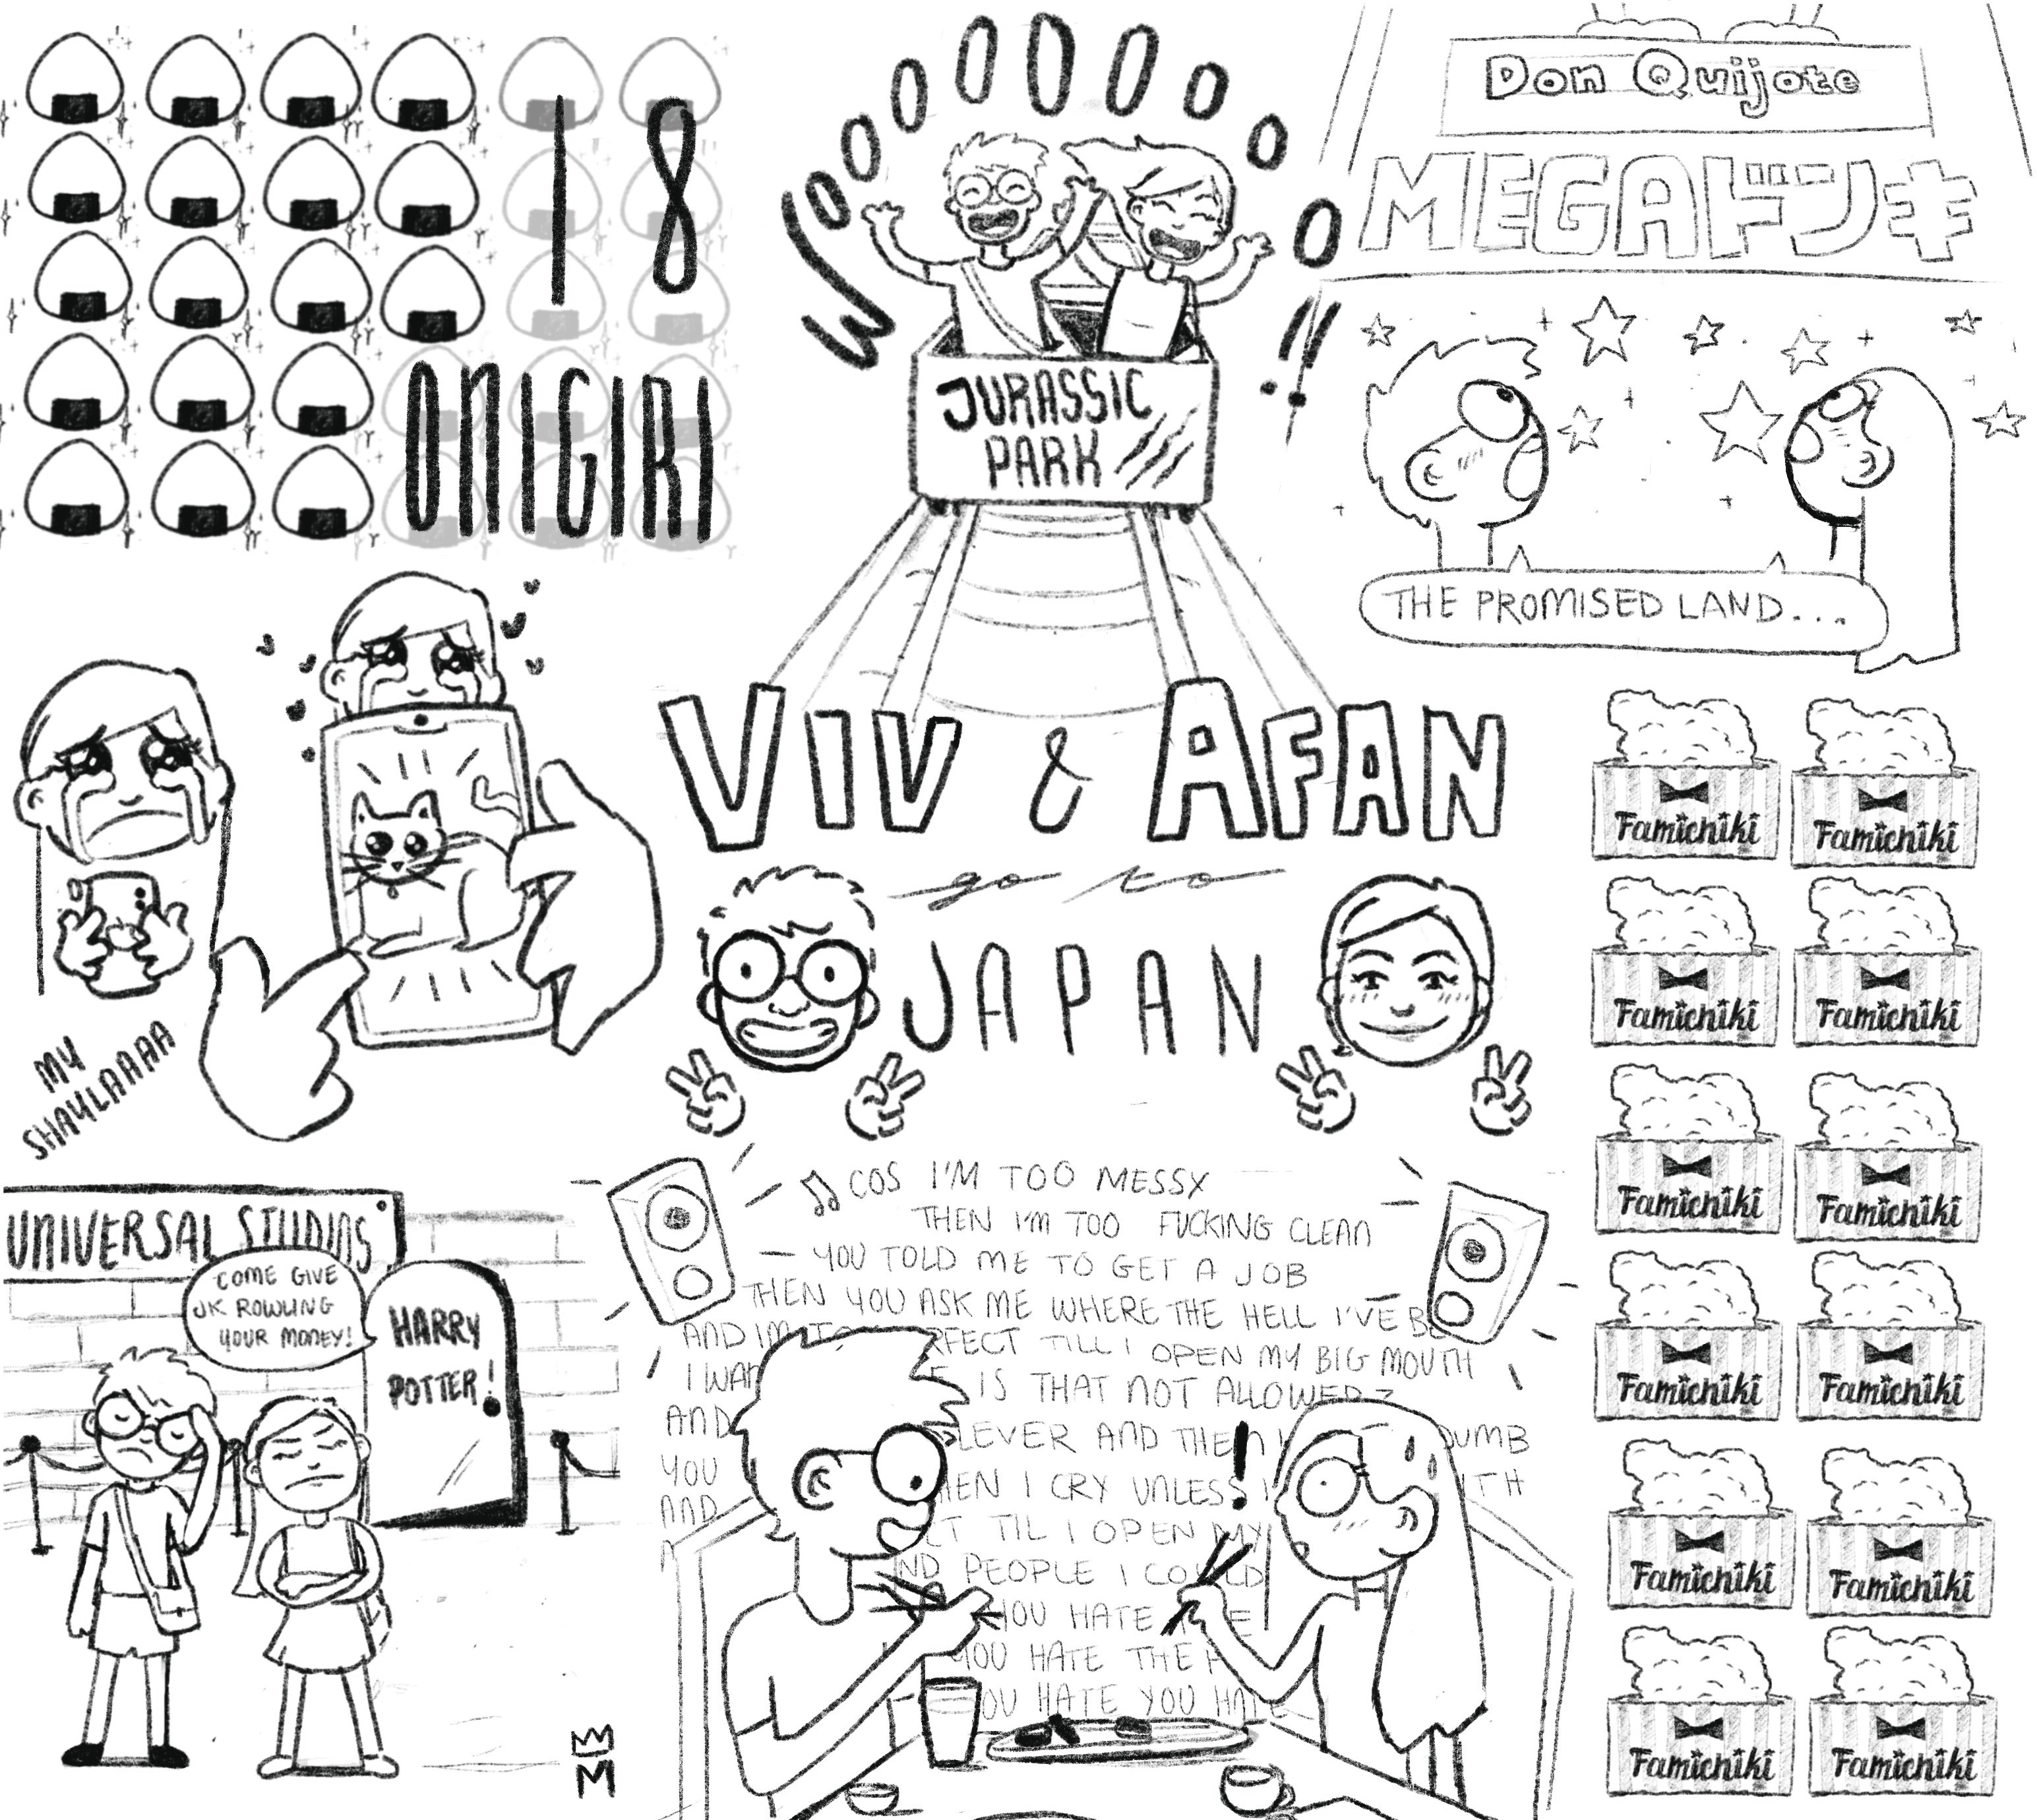 18
ONIGIRI
WOOOOOOOOOO!!
JURASSIC
PARK
Don Quijote
MEGAドンキ
THE PROMISED LAND...
MY
SHAYLAAAA
VIV & AFAN
go to
JAPAN
Famichiki
Famichiki
Famichiki
Famichiki
Famichiki
Famichiki
Famichiki
Famichiki
Famichiki
Famichiki
Famichiki
Famichiki
UNIVERSAL STUDIOS
COME GIVE
JK ROWLING
YOUR MONEY!
HARRY
POTTER!
COS I'M TOO MESSY
THEN I'M TOO FUCKING CLEAN
YOU TOLD ME TO GET A JOB
THEN YOU ASK ME WHERE THE HELL I'VE
AND IM TILL I OPEN MY BIG MOUTH
I IS THAT NOT ALLOWED?
AND AND THEN DUMB
YOU I CRY UNLESS I
AND TIL I OPEN MY
PEOPLE I
YOU HATE ME
YOU HATE THE
YOU HATE YOU HATE
!